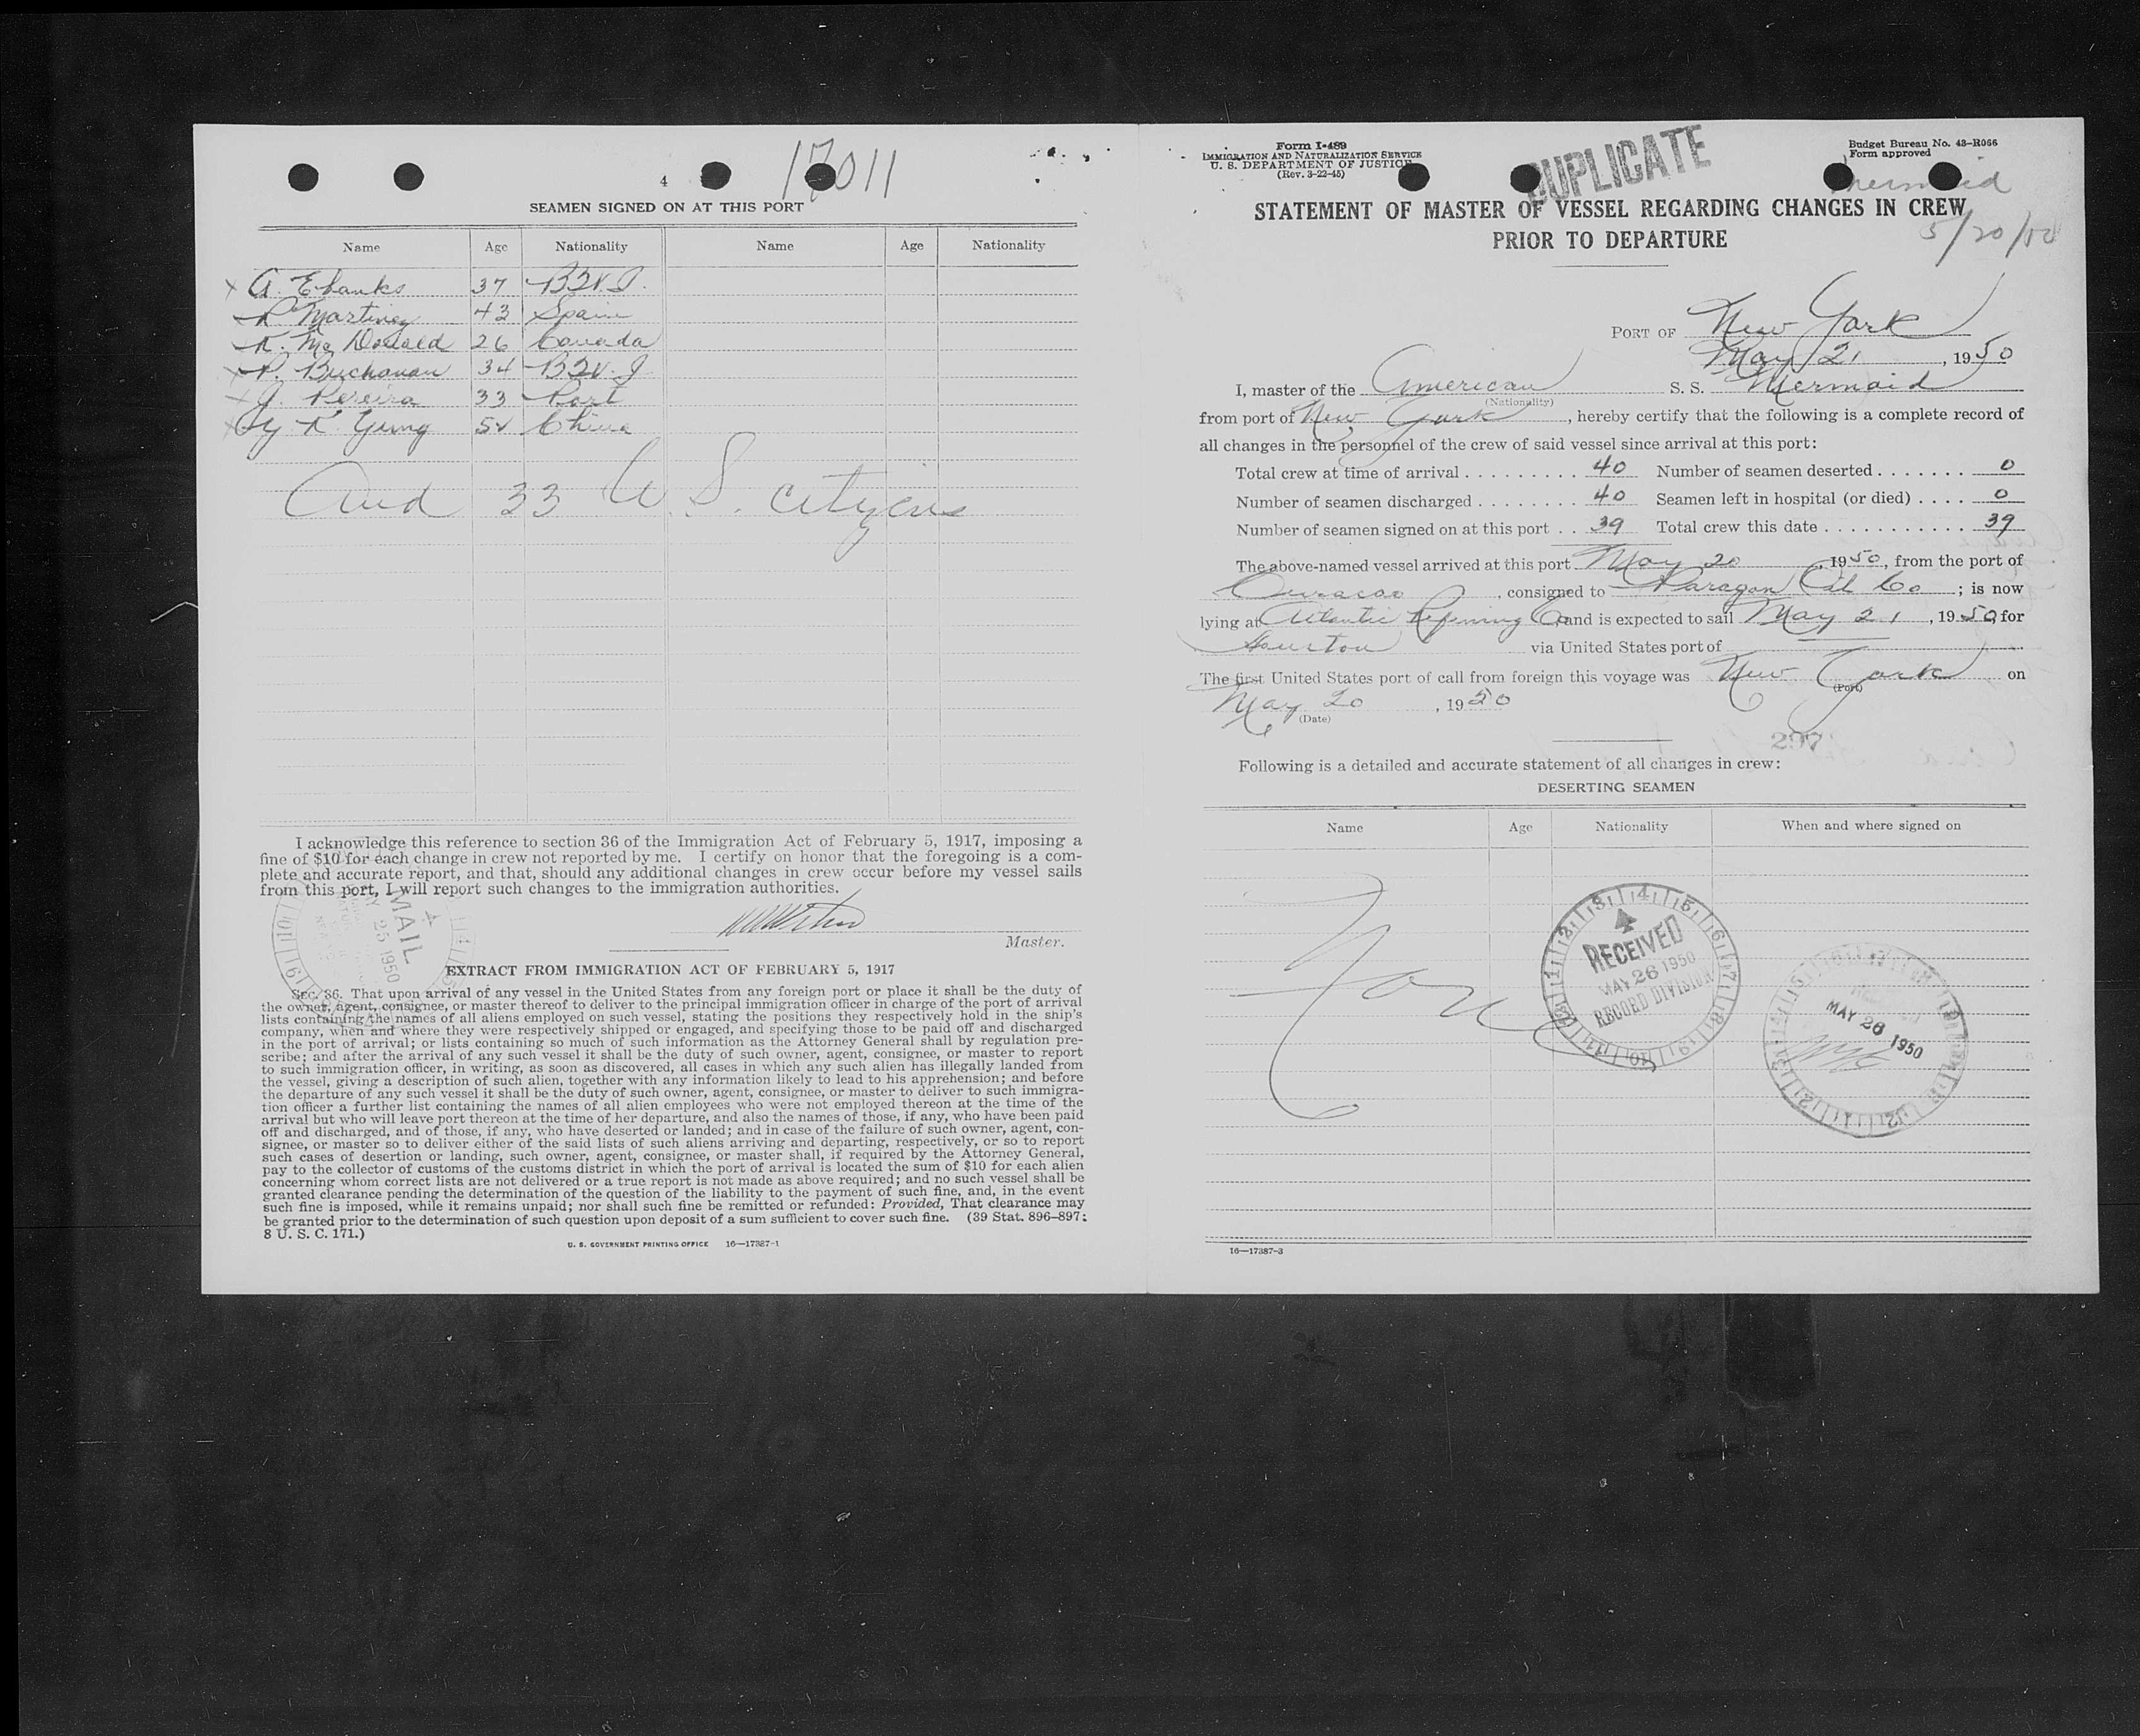 4
17011
SEAMEN SIGNED ON AT THIS PORT
Name Age Nationality Name Age Nationality
x A. Ebanks 37 B.W.I.
x R Martinez 43 Spain
x K. Mc Donald 26 Canada
x P. Buchanan 34 B.W.I
x J. Pereira 33 Port
x Young China
And 33 U.S. citizens
I acknowledge this reference to section 36 of the Immigration Act of February 5, 1917, imposing a
fine of $10 for each change in crew not reported by me. I certify on honor that the foregoing is a com-
plete and accurate report, and that, should any additional changes in crew occur before my vessel sails
from this port, I will report such changes to the immigration authorities.
MAIL
25 1950
Master.
EXTRACT FROM IMMIGRATION ACT OF FEBRUARY 5, 1917
SEC. 36. That upon arrival of any vessel in the United States from any foreign port or place it shall be the duty of
the owner, agent, consignee, or master thereof to deliver to the principal immigration officer in charge of the port of arrival
lists containing the names of all aliens employed on such vessel, stating the positions they respectively hold in the ship's
company, when and where they were respectively shipped or engaged, and specifying those to be paid off and discharged
in the port of arrival; or lists containing so much of such information as the Attorney General shall by regulation pre-
scribe; and after the arrival of any such vessel it shall be the duty of such owner, agent, consignee, or master to report
to such immigration officer, in writing, as soon as discovered, all cases in which any such alien has illegally landed from
the vessel, giving a description of such alien, together with any information likely to lead to his apprehension; and before
the departure of any such vessel it shall be the duty of such owner, agent, consignee, or master to deliver to such immigra-
tion officer a further list containing the names of all alien employees who were not employed thereon at the time of the
arrival but who will leave port thereon at the time of her departure, and also the names of those, if any, who have been paid
off and discharged, and of those, if any, who have deserted or landed; and in case of the failure of such owner, agent, con-
signee, or master so to deliver either of the said lists of such aliens arriving and departing, respectively, or so to report
such cases of desertion or landing, such owner, agent, consignee, or master shall, if required by the Attorney General,
pay to the collector of customs of the customs district in which the port of arrival is located the sum of $10 for each alien
concerning whom correct lists are not delivered or a true report is not made as above required; and no such vessel shall be
granted clearance pending the determination of the question of the liability to the payment of such fine, and, in the event
such fine is imposed, while it remains unpaid; nor shall such fine be remitted or refunded: Provided, That clearance may
be granted prior to the determination of such question upon deposit of a sum sufficient to cover such fine. (39 Stat. 896–897;
8 U. S. C. 171.)
U. S. GOVERNMENT PRINTING OFFICE 16—17387-1
Form I-489
IMMIGRATION AND NATURALIZATION SERVICE
U. S. DEPARTMENT OF JUSTICE
(Rev. 3-22-45)
DUPLICATE
Budget Bureau No. 43-R066
Form approved
Mermaid
5/20/50
STATEMENT OF MASTER OF VESSEL REGARDING CHANGES IN CREW
PRIOR TO DEPARTURE
PORT OF New York
May 21, 1950
I, master of the American S. S. Mermaid
(Nationality)
from port of New York, hereby certify that the following is a complete record of
all changes in the personnel of the crew of said vessel since arrival at this port:
Total crew at time of arrival . . . . . . . . . . 40 Number of seamen deserted . . . . . . . 0
Number of seamen discharged . . . . . . . . 40 Seamen left in hospital (or died) . . . . 0
Number of seamen signed on at this port . . 39 Total crew this date . . . . . . . . . . . . 39
The above-named vessel arrived at this port May 20, 1950, from the port of
Curacao, consigned to Paragon Oil Co; is now
lying at Atlantic Refining Co and is expected to sail May 21, 1950, for
Houston via United States port of
The first United States port of call from foreign this voyage was New York on
(Port)
May 20, 1950
(Date)
297
Following is a detailed and accurate statement of all changes in crew:
DESERTING SEAMEN
Name Age Nationality When and where signed on
None
RECEIVED
MAY 26 1950
RECORD DIVISION
MAY 26 1950
16—17387-3